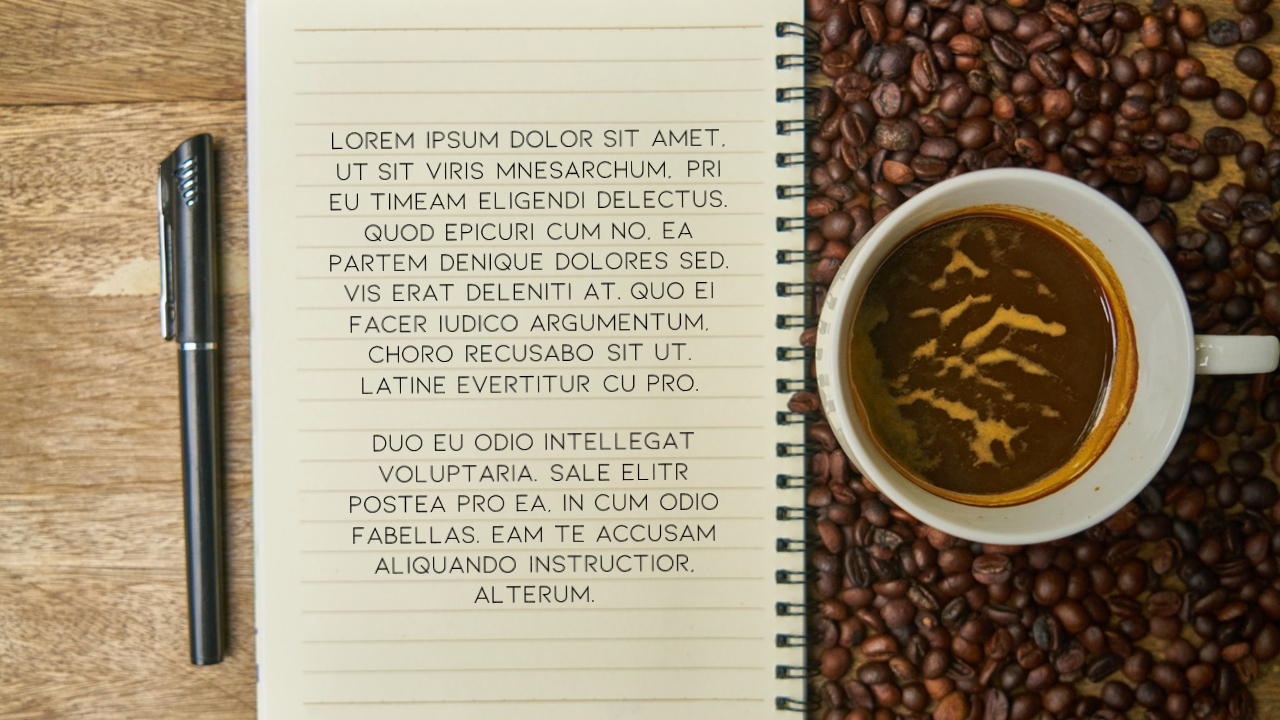 LOREM IPSUM DOLOR SIT AMET,
UT SIT VIRIS MNESARCHUM, PRI
EU TIMEAM ELIGENDI DELECTUS.
QUOD EPICURI CUM NO, EA
PARTEM DENIQUE DOLORES SED.
VIS ERAT DELENITI AT. QUO EI
FACER IUDICO ARGUMENTUM,
CHORO RECUSABO SIT UT.
LATINE EVERTITUR CU PRO.
DUO EU ODIO INTELLEGAT
VOLUPTARIA. SALE ELITR
POSTEA PRO EA, IN CUM ODIO
FABELLAS. EAM TE ACCUSAM
ALIQUANDO INSTRUCTIOR,
ALTERUM.